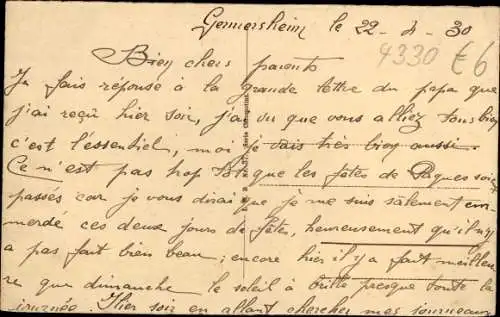 Germersheim le 22-4-30
4330 €6
Bien chers parents
Je fais réponse à la grande lettre du papa que
j'ai reçu hier soir, j'ai vu que vous alliez tous bien
c'est l'essentiel, moi je vais très bien aussi.
Ce n'est pas trop tôt que les fêtes de Paques soient
passées car je vous dirai que je me suis salement em
merdé ces deux jours de fêtes, heureusement qu'il n'y
a pas fait bien beau; encore hier il y a fait meilleu
re que dimanche le soleil à brillé presque toute la
journée. Hier soir en allant chercher mes journeaux